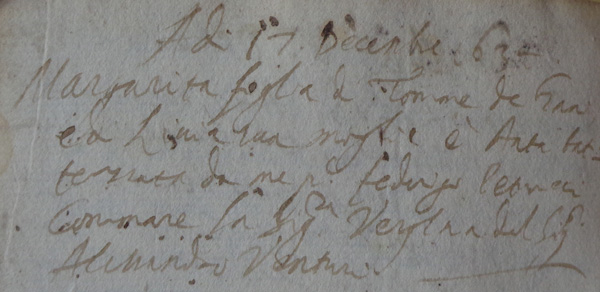 Adi 17 Decembe 63
Margarita figla di Tomme de Gan
e di Livia sua moglie è stata bat=
tezzata da me p. federigo
Commare la Sig.ra Verginia del Sig.
Alessandro Venturi